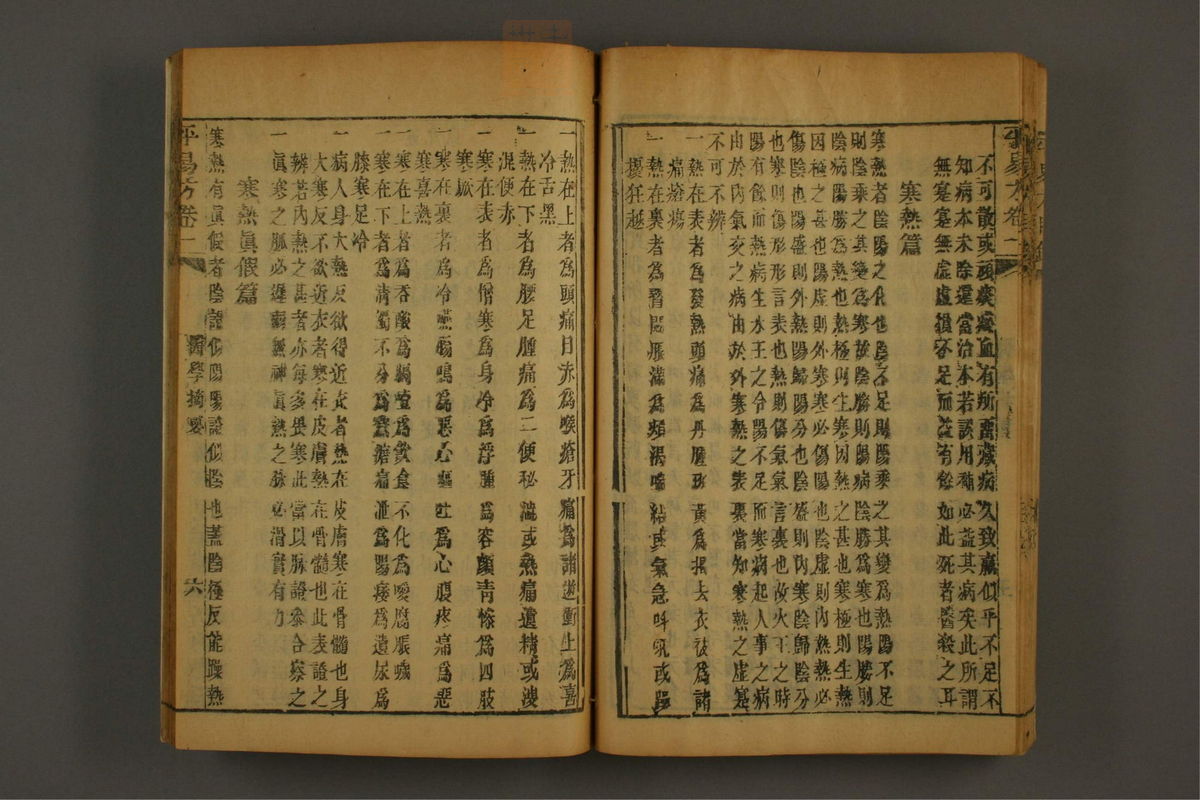 不可散或頭瘡癘血有所患痰病久致羸似乎不足不
知病本未除還當治本若誤用補必益其病矣此所謂
無實實無虛虛損不足而益有餘如此死者醫殺之耳
寒熱篇
寒熱者陰陽之化也陰不足則陽乘之其變爲熱陽不足
則陰乘之其變爲寒故陰勝則陽病陰勝爲寒也陽勝則
陰病陽勝爲熱也熱極則生寒因熱之甚也寒極則生熱
因極之甚也陽虛則外寒寒必傷陽也陰虛則內熱熱必
傷陰也陽盛則外熱陽歸陽分也陰盛則內寒陰歸陰分
也寒則傷形形言表也熱則傷氣氣言裏也故火王之時
陽有餘而熱病生水王之令陽不足而寒病起人事之病
由於內氣交之病由於外寒熱之表裏當知寒熱之虛實
不可不辨
一熱在表者爲發熱頭痛爲丹腫斑黃爲揭去衣被爲諸
痛瘡瘍
一熱在裏者爲瞀悶脹滿爲煩渴喘結或氣急叫吼或躁
擾狂越
一熱在上者爲頭痛目赤爲喉瘡牙痛爲諸逆衝上爲喜
冷舌黑
一熱在下者爲腰足腫痛爲二便秘濇或熱痛遺精或溲
混便赤
一寒在表者爲憎寒爲身冷爲浮腫爲容顏青慘爲四肢
寒厥
一寒在裏者爲冷嚥腸鳴爲惡心嘔吐爲心腹疼痛爲惡
寒喜熱
一寒在上者爲吞酸爲膈噎爲飲食不化爲噯腐脹噦
一寒在下者爲清濁不分爲鶩溏痛泄爲陽痿爲遺尿爲
膝寒足冷
一病人身大熱反欲得近衣者熱在皮膚寒在骨髓也身
大寒反不欲近衣者寒在皮膚熱在骨髓也此表證之
辨若內熱之甚者亦每多畏寒此當以脈證參合察之
一眞寒之脈必遲弱無神眞熱之脈必滑實有力
寒熱眞假篇
寒熱有眞假者陰證似陽陽證似陰也蓋陰極反能躁熱
平易方卷一
醫學摘要
六